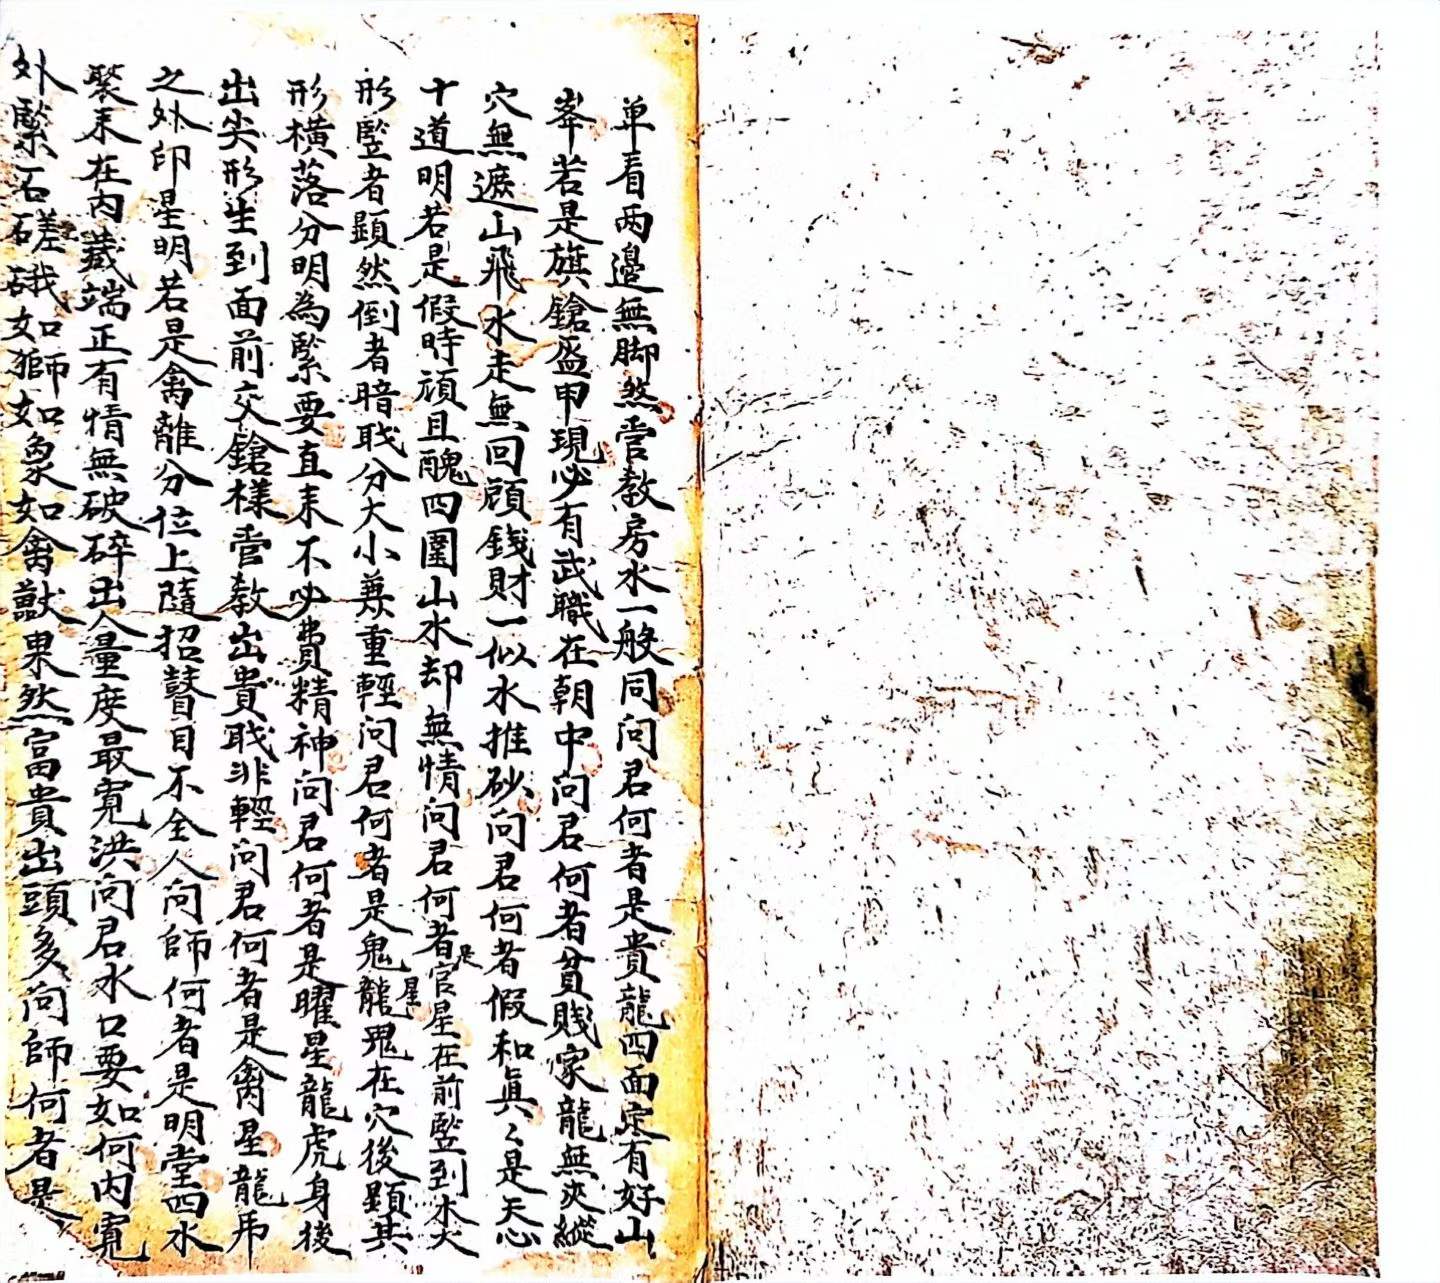 单看两邊無脚煞管教房水一般同问君何者是貴龍四面定有好山
峯若是旗鎗盔甲現必有武職在朝中问君何者貧賤家龍無夾縱
穴無遮山飛水走無回顧錢財一似水推砂问君何者假和真々是天心
十道明若是假時頑且醜四圍山水却無情问君何者是官星在前竪到水大
形竪者顯然倒者暗耺分大小兼重輕问君何者是鬼龍星鬼在穴後顯其
形橫落分明為緊要直来不必費精神问君何者是曜星龍虎身後
出尖形生到面前交鎗樣管教出貴耺非輕问君何者是禽星龍帍
之外印星明若是禽離分位上隨招瞽目不全人问師何者是明堂四水
聚来在内藏端正有情無破碎出人量度最寬洪问君水口要如何内寬
外緊石磋硪如獅如象如禽獸果然富貴出頭多问師何者是